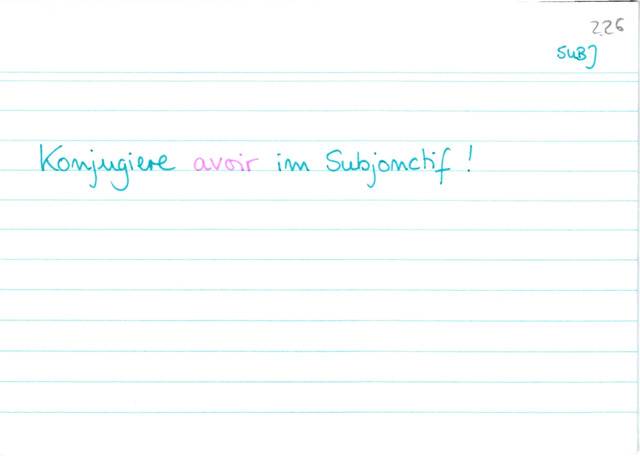 226
SUBJ
Konjugiere avoir im Subjonctif!